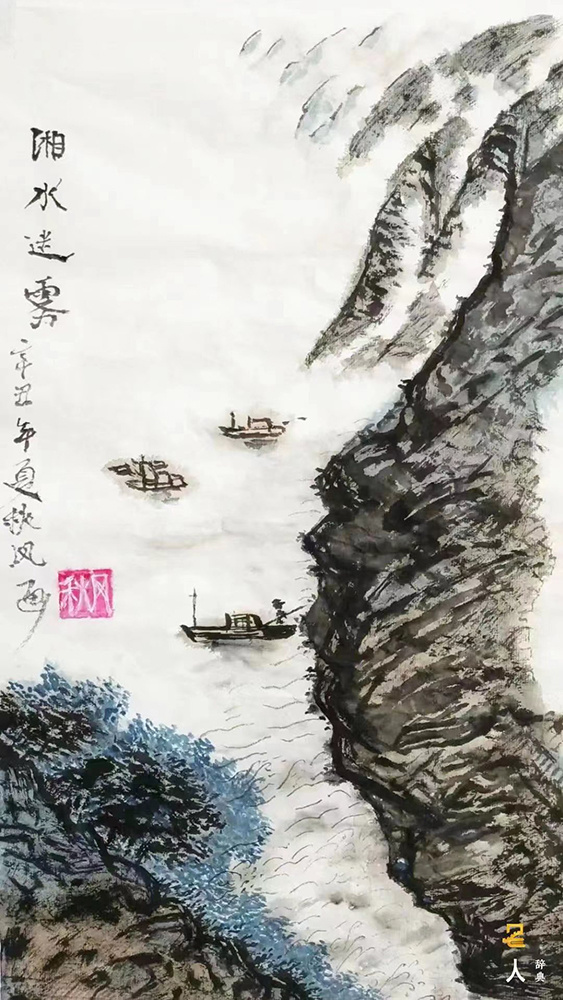 湘水迷雾
辛丑年夏秋风画
秋风
人
辞典